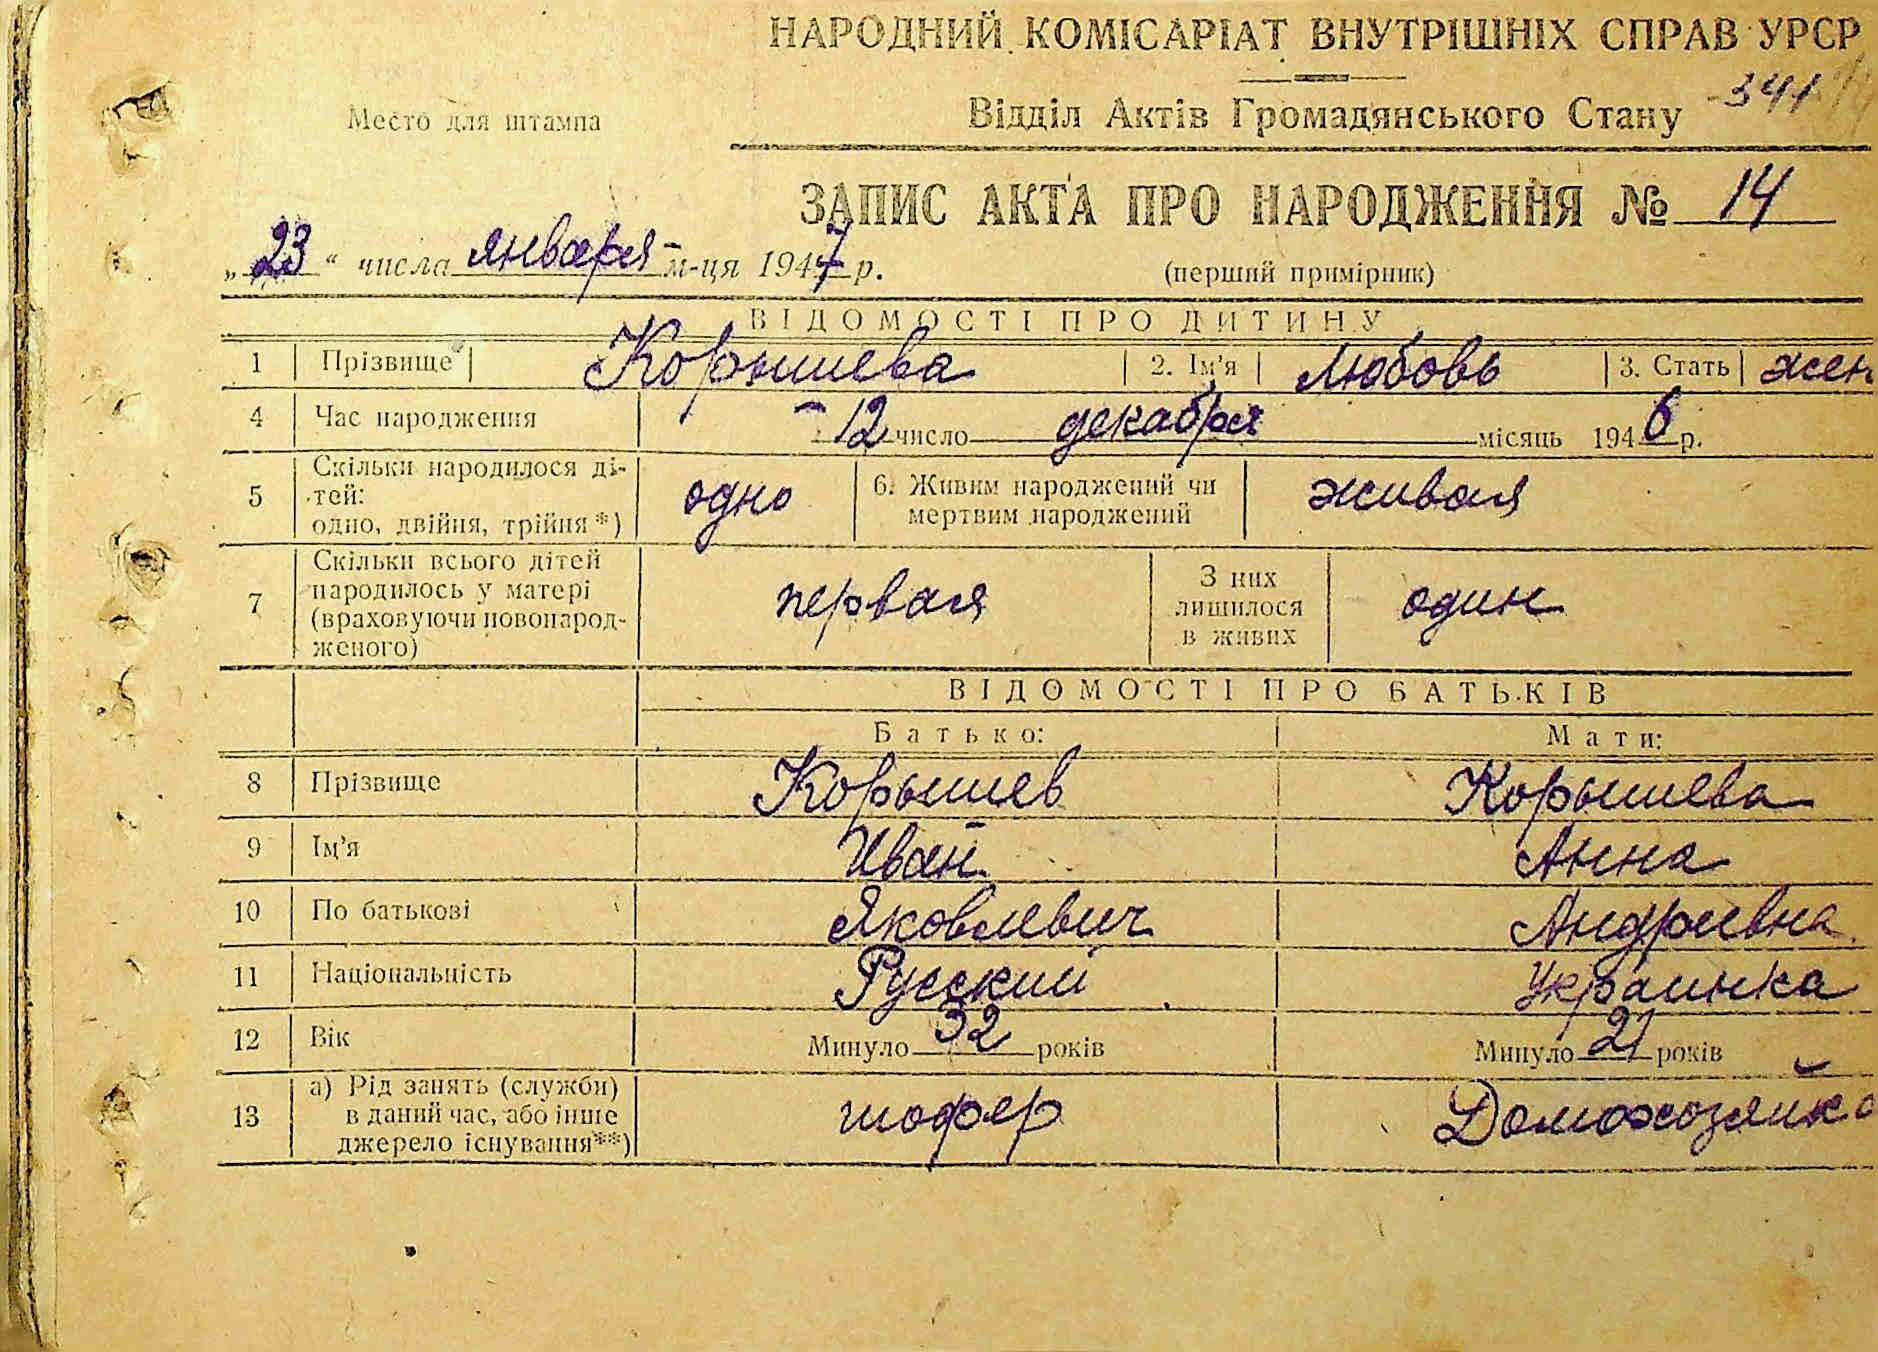 НАРОДНИЙ КОМІСАРІАТ ВНУТРІШНІХ СПРАВ УРСР
341
Место для штампа
Відділ Актів Громадянського Стану
ЗАПИС АКТА ПРО НАРОДЖЕННЯ № 14
„23“ числа января м-ця 1947 р.
(перший примірник)
ВІДОМОСТІ ПРО ДИТИНУ
1 Прізвище Корышева 2. Ім'я Любовь 3. Стать жен
4 Час народження 12 число декабря місяць 1946 р.
5 Скільки народилося ді-
тей:
одно, двійня, трійня *)
одно
6. Живим народжений чи
мертвим народжений
живая
7 Скільки всього дітей
народилось у матері
(враховуючи новонарод-
женого)
первая
З них
лишилося
в живих
один
ВІДОМОСТІ ПРО БАТЬКІВ
Батько: Мати:
8 Прізвище Корышев Корышева
9 Ім'я Иван Анна
10 По батькові Яковлевич Андреевна
11 Національність Русский Украинка
12 Вік Минуло 32 років Минуло 21 років
13 а) Рід занять (служби)
в даний час, або інше
джерело існування**)
шофер Домохозяйка